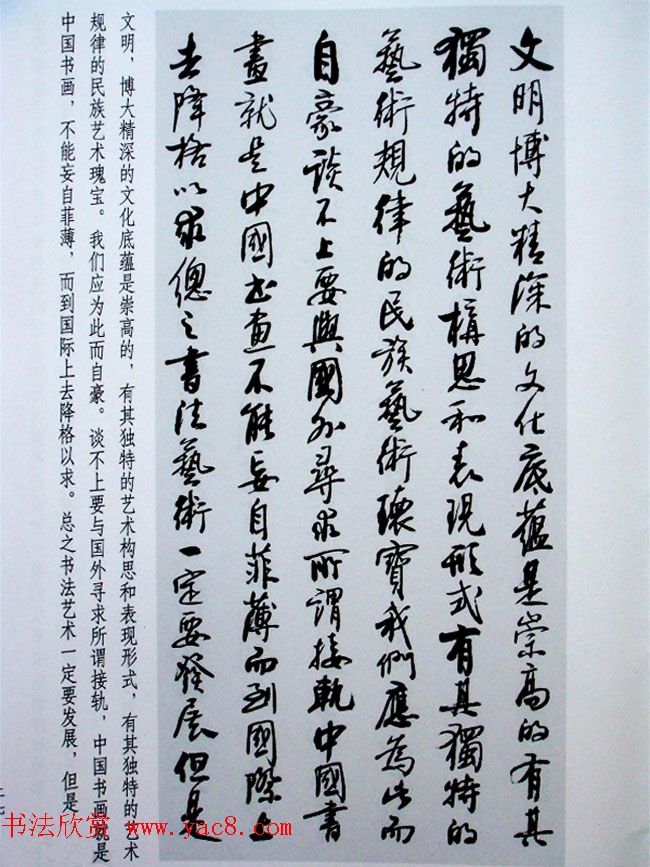 文明博大精深的文化底蘊是崇高的有其
獨特的藝術構思和表現形式有其獨特的
藝術規律的民族藝術瓌寶我們應為此而
自豪談不上要與國外尋求所謂接軌中國書
畫就是中國書畫不能妄自菲薄而到國際上
去降格以求總之書法藝術一定要發展但是
文明，博大精深的文化底蕴是崇高的，有其独特的艺术构思和表现形式，有其独特的艺术
规律的民族艺术瑰宝。我们应为此而自豪。谈不上要与国外寻求所谓接轨，中国书画就是
中国书画，不能妄自菲薄，而到国际上去降格以求。总之书法艺术一定要发展，但是
书法欣赏 www.yac8.com